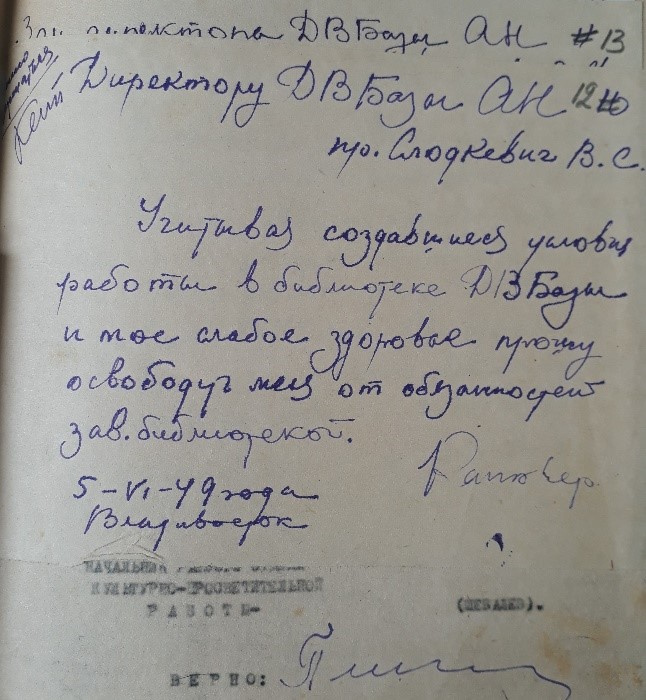 ДВ Базы АН #13
Директору ДВ Базы АН 12
пр. Слодкевич В. С.
Учитывая создавшиеся условия
работы в библиотеке ДВ Базы
и мое слабое здоровье прошу
освободить меня от обязанностей
зав. библиотекой.
5-VI-49 года
Владивосток
НАЧАЛЬНИК
КУЛЬТУРНО-ПРОСВЕТИТЕЛЬНОЙ
РАБОТЫ-
(ШЕВАЛЕВ).
ВЕРНО: